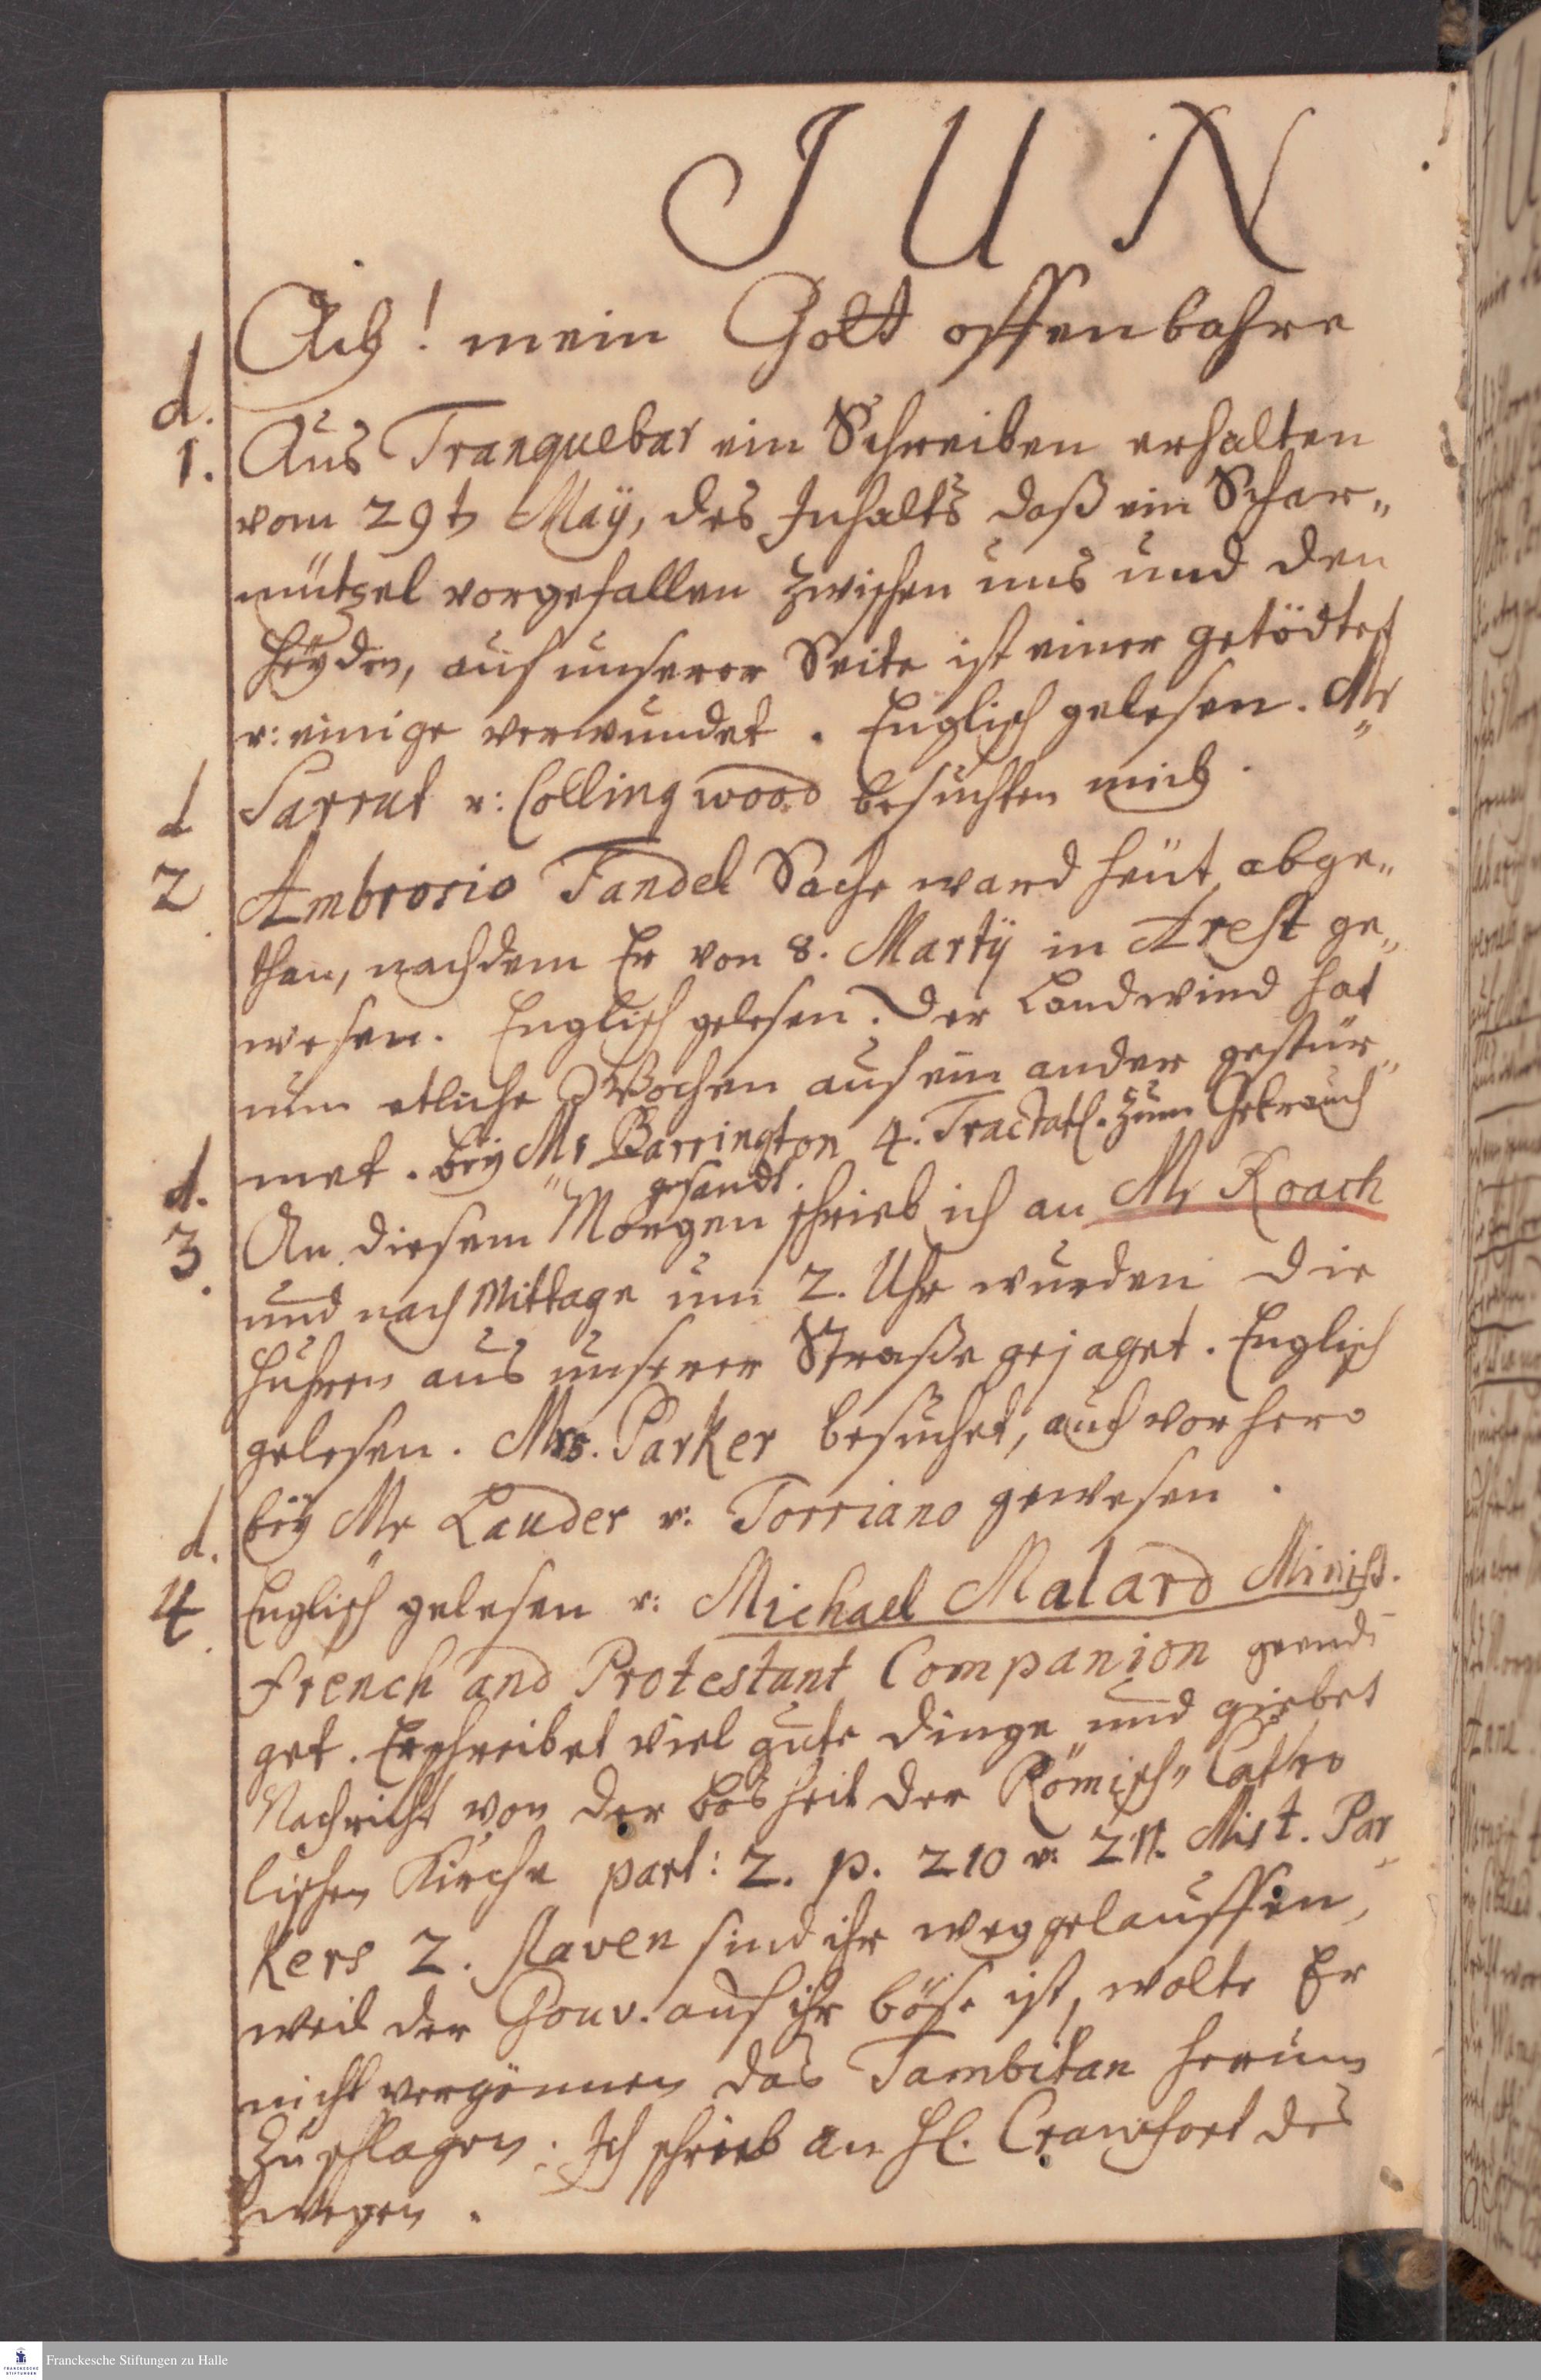 JUN
Ach! mein Gott offenbahre
d.
1. Aus Tranquebar ein Schreiben erhalten
vom 29t May, des Inhalts daß ein Schar„
mützel vorgefallen zwischen uns und den
Heyden, auf unserer Seite ist einer getödtet
u: einige verwundet. Englisch gelesen. Mr
Sarrut u: Collingwood besuchten mich.
d
2 Ambrosio Fandel Sache ward heut abge„
than, nachdem Er von 8. Martÿ in Arest ge„
wesen. Englisch gelesen. Der Landwind hat
nun etliche Wochen auf ein ander gestür„
met. beÿ Mr Barrington 4. Tractatl. zum Gebrauch
gesandt.
d.
3. An diesem Morgen schrieb ich an Mr Roach
und nach Mittage um 2. Uhr wurden die
Huhren aus unserer Straße gejaget. Englisch
gelesen. Mrs. Parker besuchet, auch vorhero
beÿ Mr Lauder u: Torriano gewesen.
d.
4 Englisch gelesen u: Michael Malard Minist.
French and Protestant Companion geendi
get. Er schreibet viel gute dinge und giebet
Nachricht von der bosheit der Römisch„ Catho
lischen Kirche part: 2. p. 210 u: 211. Mist. Par„
kers 2. slaven sind ihr weggelauffen,
weil der Gouv. auf ihr böse ist, wolte Er
nicht vergönnen das Tambitan herum
zu schlagen. Ich schrieb an Hl. Crawfort des
wegen.
Franckesche Stiftungen zu Halle